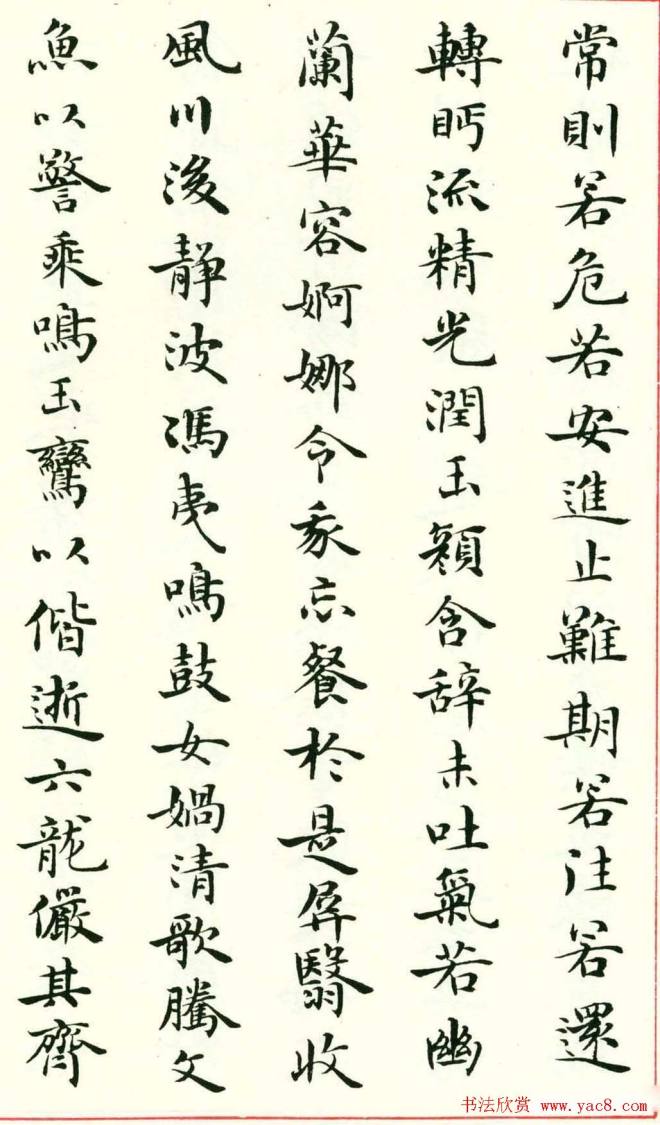 常則若危若安進止難期若往若還
轉眄流精光潤玉顏含辞未吐氣若幽
蘭華容婀娜令我忘餐於是屏翳收
風川後静波馮夷鳴鼓女媧清歌騰文
魚以警乘鳴玉鸞以偕逝六龍儼其齊
书法欣赏 www.yac8.com